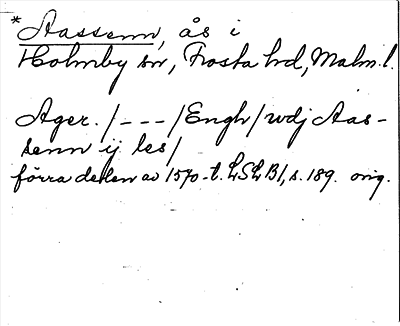 * Aassenn, ås i
Holmby sn, Frosta hd, Malm. l.
Ager. /---/ Engh / wdj Aas-
senn ij les /
förra delen av 1570-t. LSLB1, s. 189. orig.